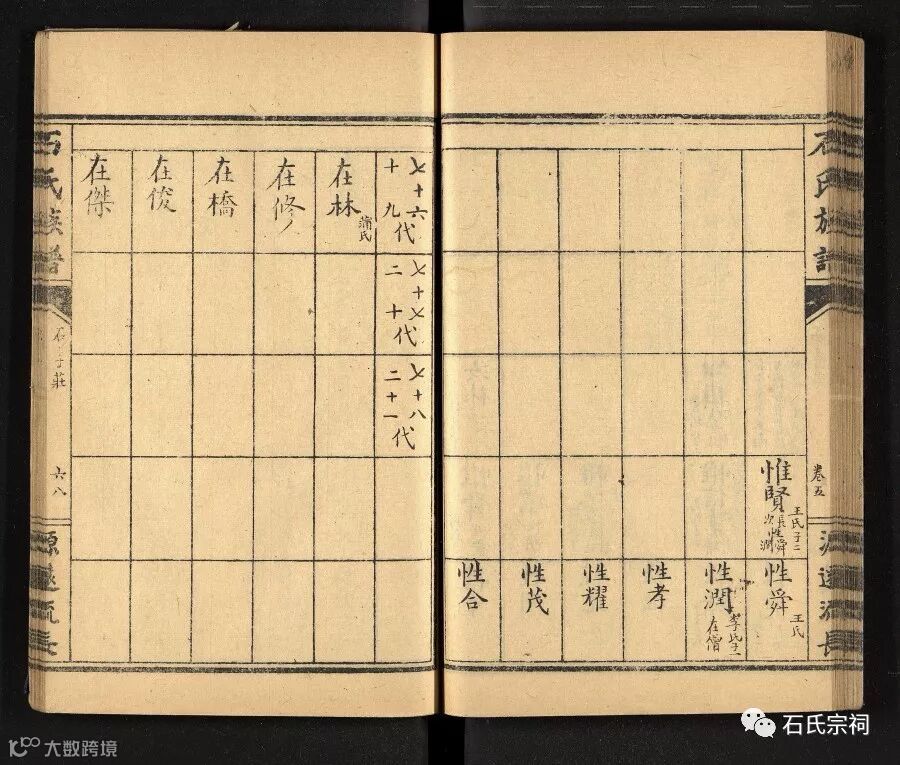 石氏族譜
卷五
源遠流長
惟賢 王氏 子二 長性舜 次性潤
性舜 王氏
性潤 李氏 子一 在僧
性孝
性耀
性茂
性合
七十六代
十九
七十七代
二十
七十八代
二十一
在林 蒲氏
在修
在橋
在俊
在傑
石氏族譜
莊
六八
源遠流長
石氏宗祠
大数跨境